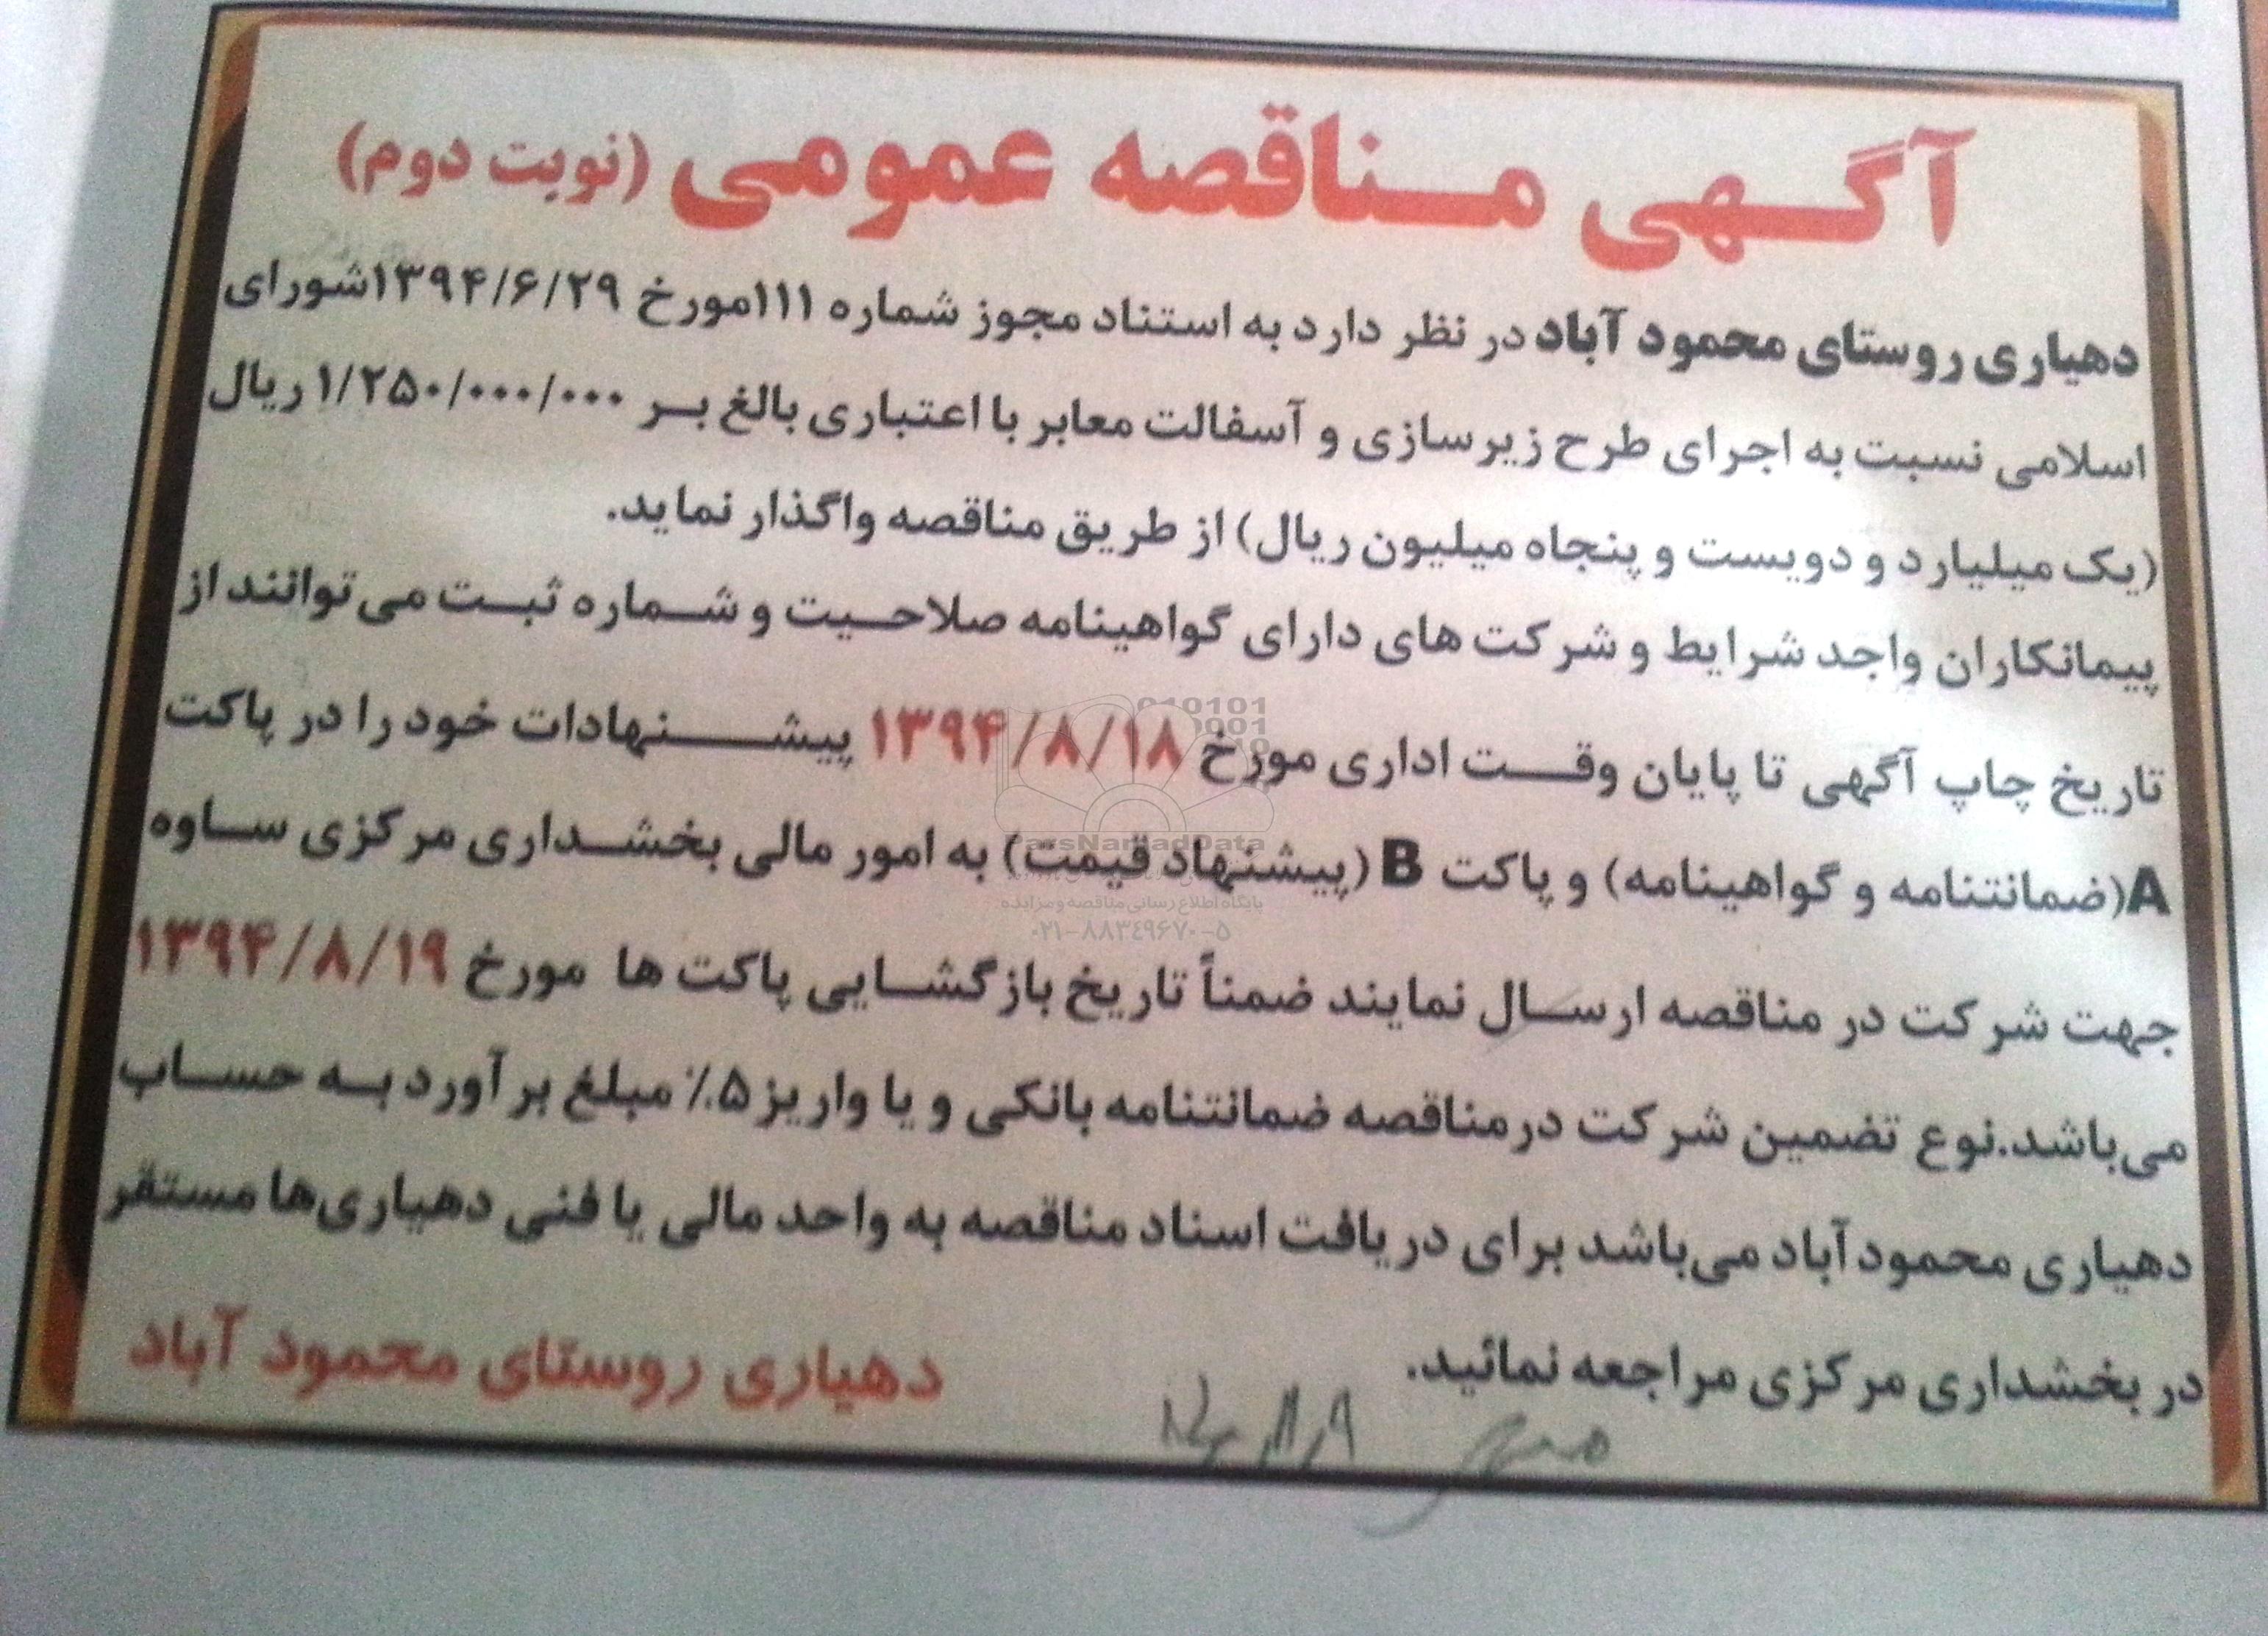 آگهی مناقصه عمومی (نوبت دوم)
دهیاری روستای محمود آباد در نظر دارد به استناد مجوز شماره ۱۱۱مورخ ۱۳۹۴/۶/۲۹شورای
اسلامی نسبت به اجرای طرح زیرسازی و آسفالت معابر با اعتباری بالغ بر ۱/۲۵۰/۰۰۰/۰۰۰ ریال
(یک میلیارد و دویست و پنجاه میلیون ریال) از طریق مناقصه واگذار نماید.
پیمانکاران واجد شرایط و شرکت های دارای گواهینامه صلاحیت و شماره ثبت می توانند از
تاریخ چاپ آگهی تا پایان وقت اداری مورخ ۱۳۹۴/۸/۱۸ پیشنهادات خود را در پاکت
A(ضمانتنامه و گواهینامه) و پاکت B (پیشنهاد قیمت) به امور مالی بخشداری مرکزی ساوه
جهت شرکت در مناقصه ارسال نمایند ضمناً تاریخ بازگشایی پاکت ها مورخ ۱۳۹۴/۸/۱۹
می‌باشد.نوع تضمین شرکت درمناقصه ضمانتنامه بانکی و یا واریز ۵٪ مبلغ برآورد به حساب
دهیاری محمودآباد می‌باشد برای دریافت اسناد مناقصه به واحد مالی یا فنی دهیاری‌ها مستقر
در بخشداری مرکزی مراجعه نمائید.
دهیاری روستای محمود آباد
ParsNamadData
پایگاه اطلاع رسانی مناقصه و مزایده
۰۲۱-۸۸۳۴۹۶۷۰-۵